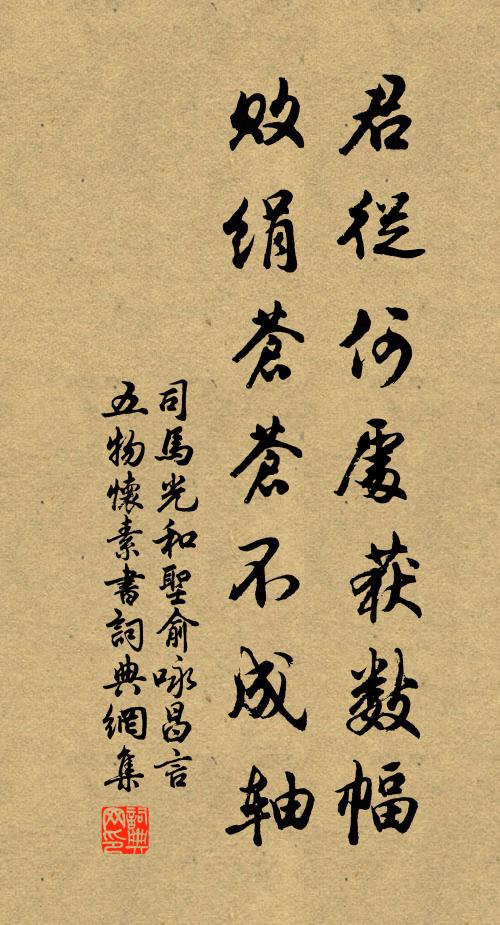 君從何處获數幅
败绢蒼蒼不成轴
司馬光和聖俞咏昌言
五物懷素書詞典網集
詞典
网印